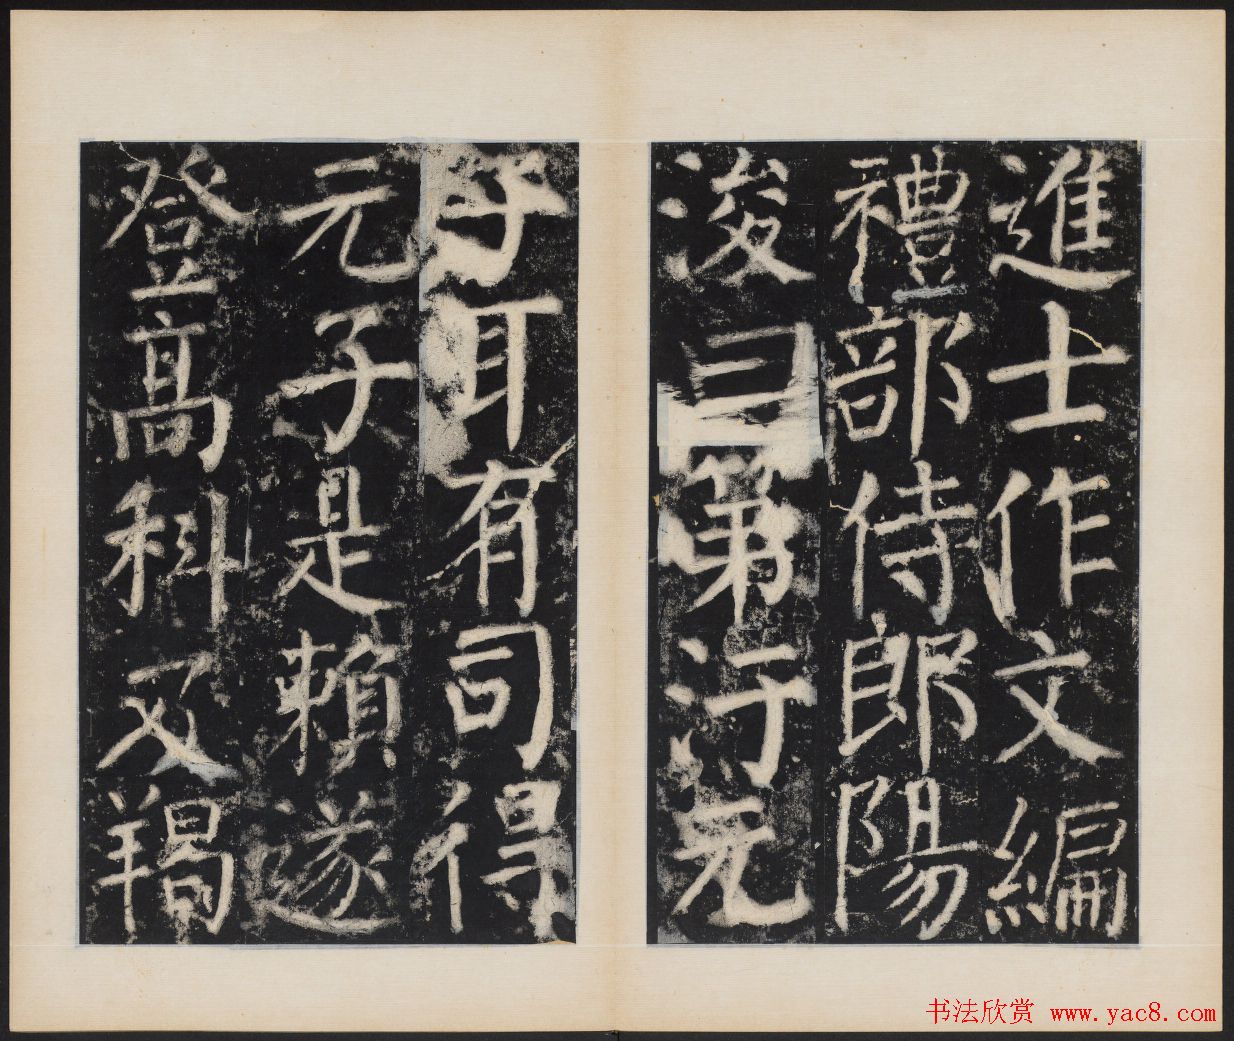 進士作文編
禮部侍郎陽
浚曰第汙元
子耳有司得
元子是賴遂
登高科及羯
书法欣赏 www.yac8.com